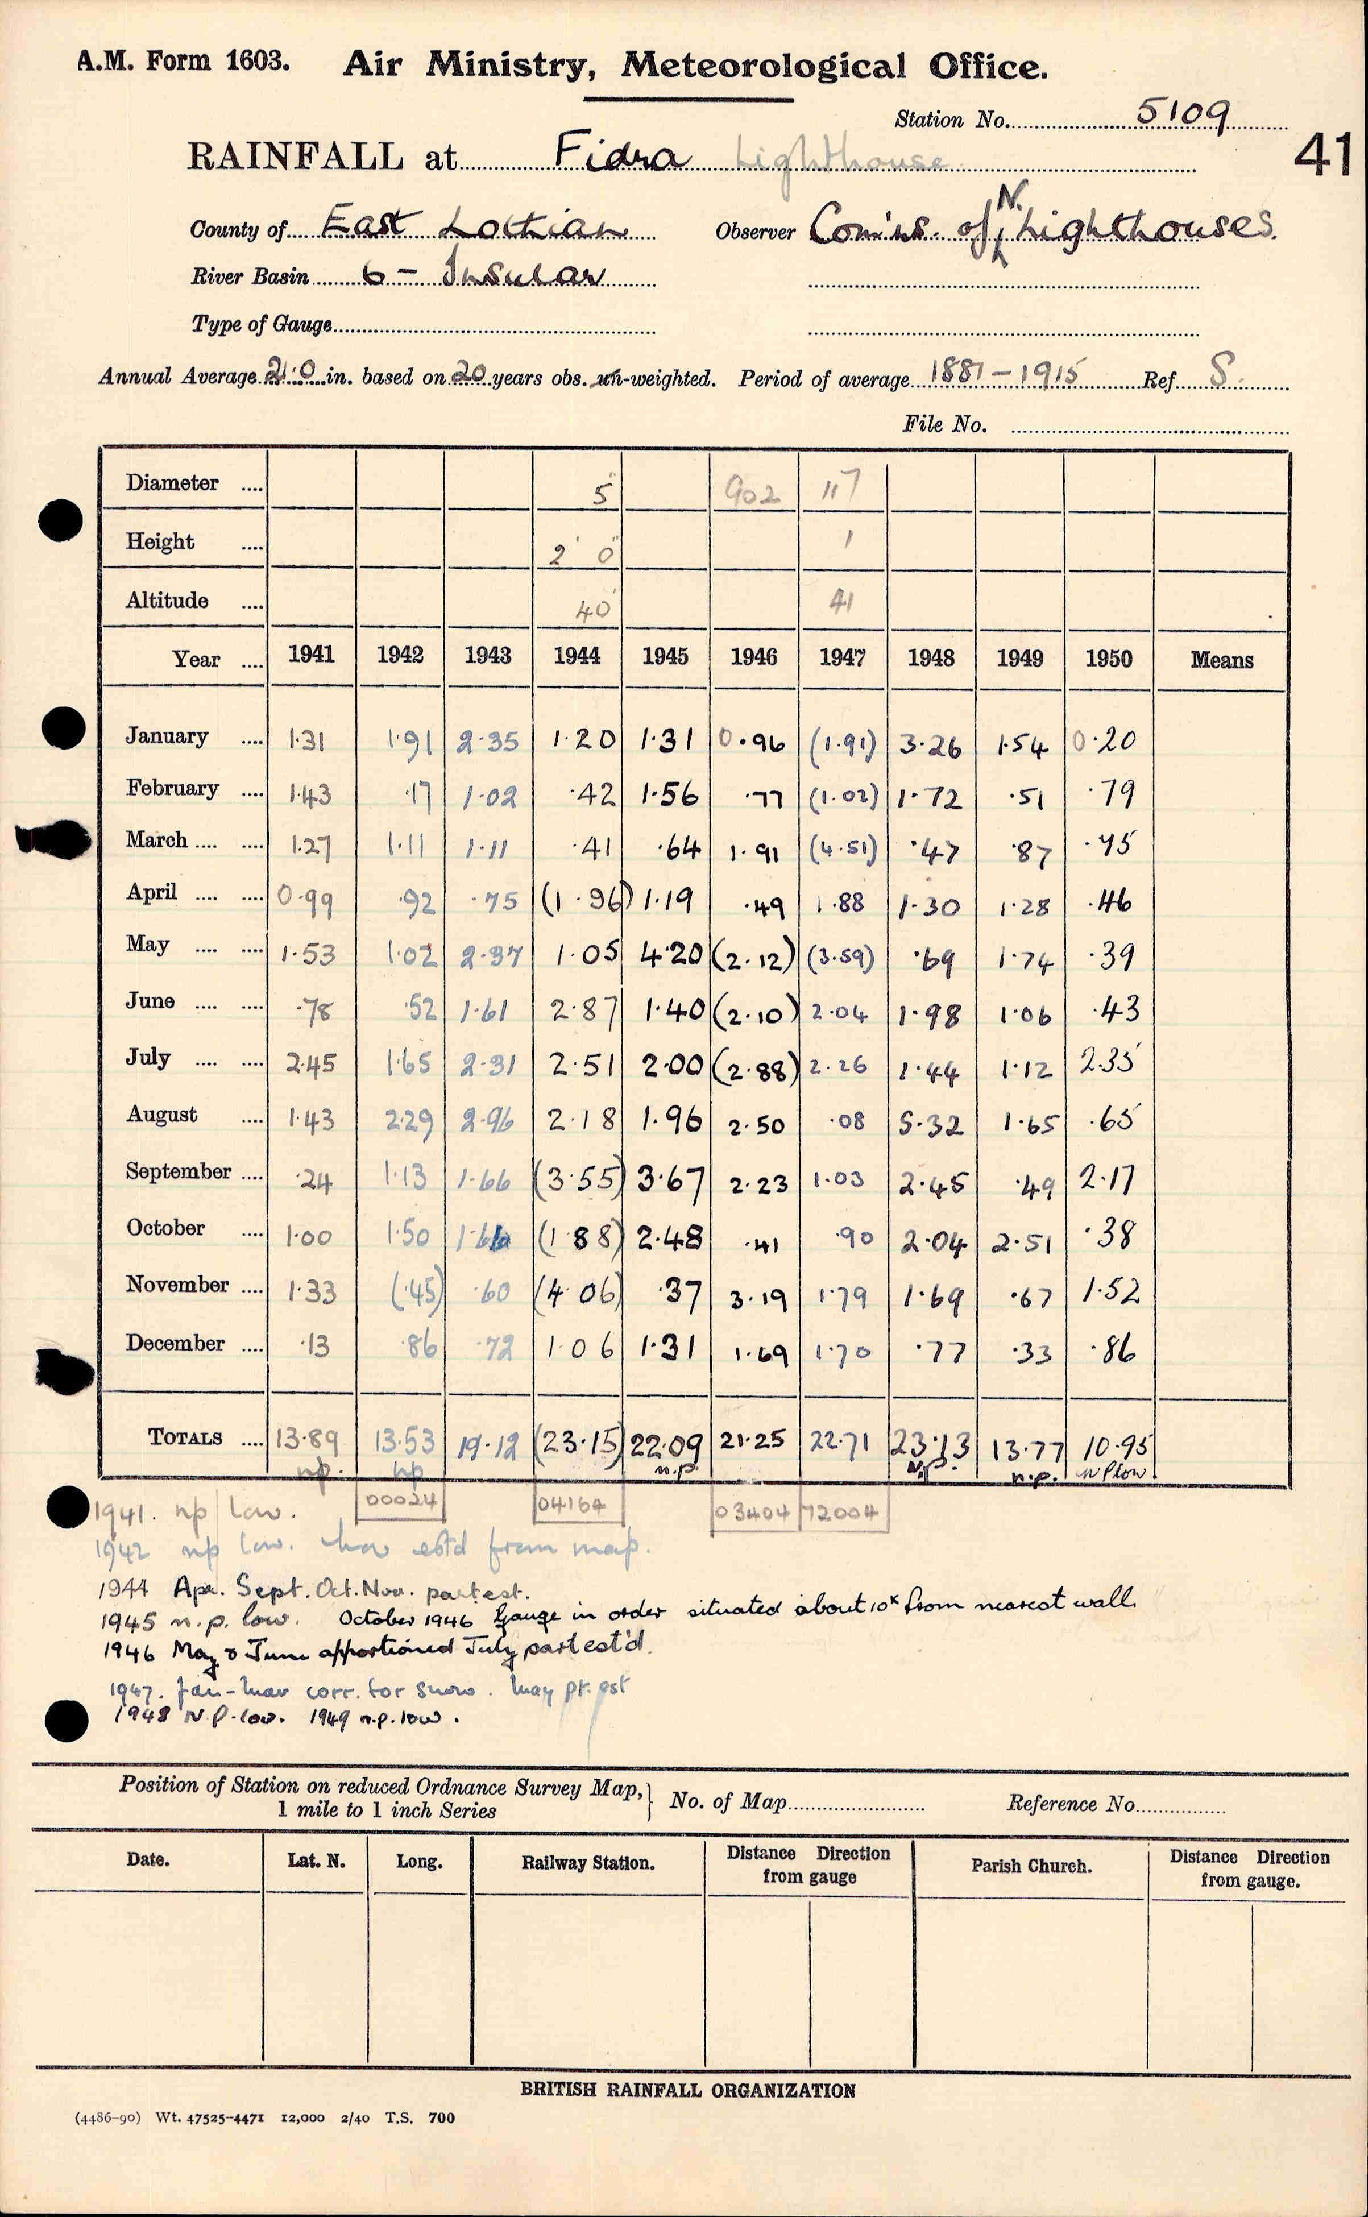 A.M. Form 1603. Air Ministry, Meteorological Office.
Station No. 5109
41
RAINFALL at Fidra Lighthouse
County of East Lothian Observer Com'ns. of N. Lighthouses
River Basin 6 - Insular
Type of Gauge
Annual Average 21.0 in. based on 20 years obs. un-weighted. Period of average 1881-1915 Ref. S.
File No.
Diameter .... 5" 902 117
Height .... 2' 0" 1
Altitude .... 40' 41
Year .... 1941 1942 1943 1944 1945 1946 1947 1948 1949 1950 Means
January .... 1.31 1.91 2.35 1.20 1.31 0.96 (1.91) 3.26 1.54 0.20
February .... 1.43 .17 1.02 .42 1.56 .77 (1.02) 1.72 .51 .79
March .... .... 1.27 1.11 1.11 .41 .64 1.91 (4.51) .47 .87 .75
April .... .... 0.99 .92 .75 (1.96) 1.19 .49 1.88 1.30 1.28 .46
May .... .... 1.53 1.02 2.37 1.05 4.20 (2.12) (3.59) .69 1.74 .39
June .... .... .78 .52 1.61 2.87 1.40 (2.10) 2.04 1.98 1.06 .43
July .... .... 2.45 1.65 2.31 2.51 2.00 (2.88) 2.26 1.44 1.12 2.35
August .... 1.43 2.29 2.96 2.18 1.96 2.50 .08 5.32 1.65 .65
September .... .24 1.13 1.66 (3.55) 3.67 2.23 1.03 2.45 .49 2.17
October .... 1.00 1.50 1.66 (1.88) 2.48 .41 .90 2.04 2.51 .38
November .... 1.33 (.45) .60 (4.06) .37 3.19 1.79 1.69 .67 1.52
December .... .13 .86 .72 1.06 1.31 1.69 1.70 .77 .33 .86
TOTALS .... 13.89 13.53 19.12 (23.15) 22.09 21.25 22.71 23.13 13.77 10.95
np. np n.p. N.p. n.p. n P low
00024 04164 03404 72004
1941. np low.
1942 np low. Nov estd from map.
1944 Apr. Sept. Oct. Nov. part est.
1945 n.p. low. October 1946 Gauge in order situated about 10x from nearest wall.
1946 May & June apportioned July part est'd.
1947. Jan-Mar corr. for snow. May pt. est
1948 N.P. low. 1949 n.p. low.
Position of Station on reduced Ordnance Survey Map, 1 mile to 1 inch Series } No. of Map Reference No.
Date. Lat. N. Long. Railway Station. Distance from gauge Direction Parish Church. Distance Direction from gauge.
BRITISH RAINFALL ORGANIZATION
(4486-90) Wt. 47525-4471 12,000 2/40 T.S. 700